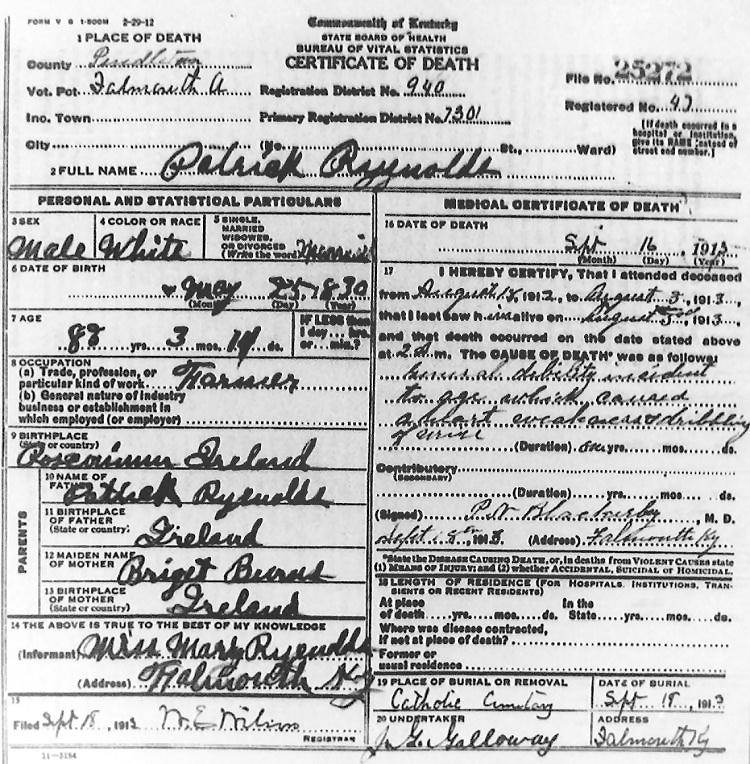 FORM V S 1-500M 2-29-12
Commonwealth of Kentucky
STATE BOARD OF HEALTH
BUREAU OF VITAL STATISTICS
CERTIFICATE OF DEATH
1 PLACE OF DEATH
County Pendleton
Vot. Pct Falmouth A
Inc. Town
City (No. St., Ward)
Registration District No. 940
Primary Registration District No. 7301
File No. 25272
Registered No. 47
[If death occurred in a
hospital or institution,
give its NAME instead of
street and number.]
2 FULL NAME Patrick Reynolds
PERSONAL AND STATISTICAL PARTICULARS
3 SEX
Male
4 COLOR OR RACE
White
5 SINGLE,
MARRIED
WIDOWED,
OR DIVORCED
(Write the word) Married
6 DATE OF BIRTH
May 25, 1830
(Month) (Day) (Year)
7 AGE
82 yrs. 3 mos. ds.
IF LESS than
1 day hrs.
or min.?
8 OCCUPATION
(a) Trade, profession, or
particular kind of work Farmer
(b) General nature of industry
business or establishment in
which employed (or employer)
9 BIRTHPLACE
(State or country)
Ireland
PARENTS
10 NAME OF
FATHER
Patrick Reynolds
11 BIRTHPLACE
OF FATHER
(State or country)
Ireland
12 MAIDEN NAME
OF MOTHER
Briget Burns
13 BIRTHPLACE
OF MOTHER
(State or country)
Ireland
14 THE ABOVE IS TRUE TO THE BEST OF MY KNOWLEDGE
(Informant) Miss Mary Reynolds
(Address) Falmouth Ky
15
Filed Sept 18, 1913 W.E. Wilson
REGISTRAR
11-3184
MEDICAL CERTIFICATE OF DEATH
16 DATE OF DEATH
Sept 16, 1913
(Month) (Day) (Year)
17 I HEREBY CERTIFY, That I attended deceased
from August 1913, to August 3, 1913,
that I last saw him alive on August 3rd, 1913,
and that death occurred on the date stated above
at 2 m. The CAUSE OF DEATH* was as follows:
General debility incident
to age which caused
a heart weakness & dribbling
of urine
(Duration) yrs. mos. ds.
Contributory
(SECONDARY)
(Duration) yrs. mos. ds.
(Signed) P.N. Blackerby, M. D.
Sept, 1913 (Address) Falmouth Ky
*State the DISEASE CAUSING DEATH, or, in deaths from VIOLENT CAUSES state
(1) MEANS OF INJURY; and (2) whether ACCIDENTAL, SUICIDAL or HOMICIDAL.
18 LENGTH OF RESIDENCE (FOR HOSPITALS, INSTITUTIONS, TRAN-
SIENTS OR RECENT RESIDENTS)
At place In the
of death yrs. mos. ds. State yrs. mos. ds.
Where was disease contracted,
if not at place of death?
Former or
usual residence
19 PLACE OF BURIAL OR REMOVAL
Catholic Cemetery
DATE OF BURIAL
Sept 18, 1913
20 UNDERTAKER
J.G. Galloway
ADDRESS
Falmouth Ky